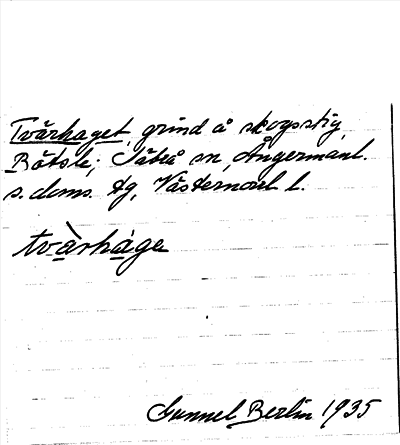 Tvärhaget, grind å skogsstig,
Båtsle; Säbrå sn, Ångermanl.
s. doms. tg, Västernorrl l.
tvàrháge
Gunnel Berlin 1935